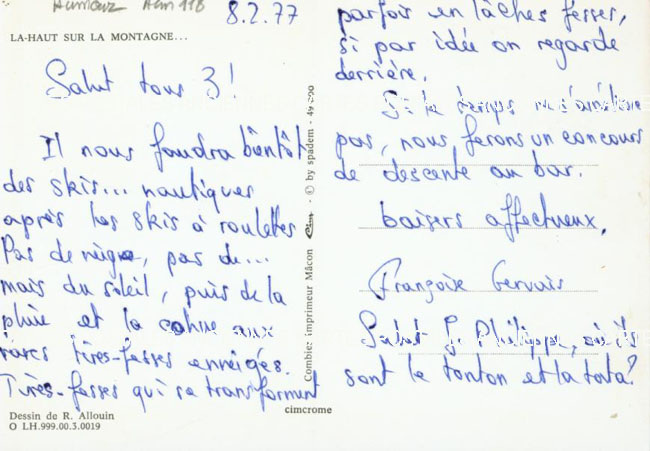 Humour Alm 118
8.2.77
LA-HAUT SUR LA MONTAGNE...
Salut tous 3!
Il nous faudra bientôt
des skis... nautiques
après les skis à roulettes
Pas de neige, pas de...
mais du soleil, puis de la
pluie et la cohue aux
rares tires-fesses enneigés.
Tires-fesses qui se transforment
Dessin de R. Allouin
O LH.999.00.3.0019
Combier imprimeur Mâcon Cim - © by spadem - 49 690
cimcrome
parfois en lâches fesses,
si par idée on regarde
derrière.
Si le temps ne s'améliore
pas, nous ferons un concours
de descente au bar.
baisers affectueux,
Françoise Gervais
Salut Philippe, où
sont le tonton et la tata?